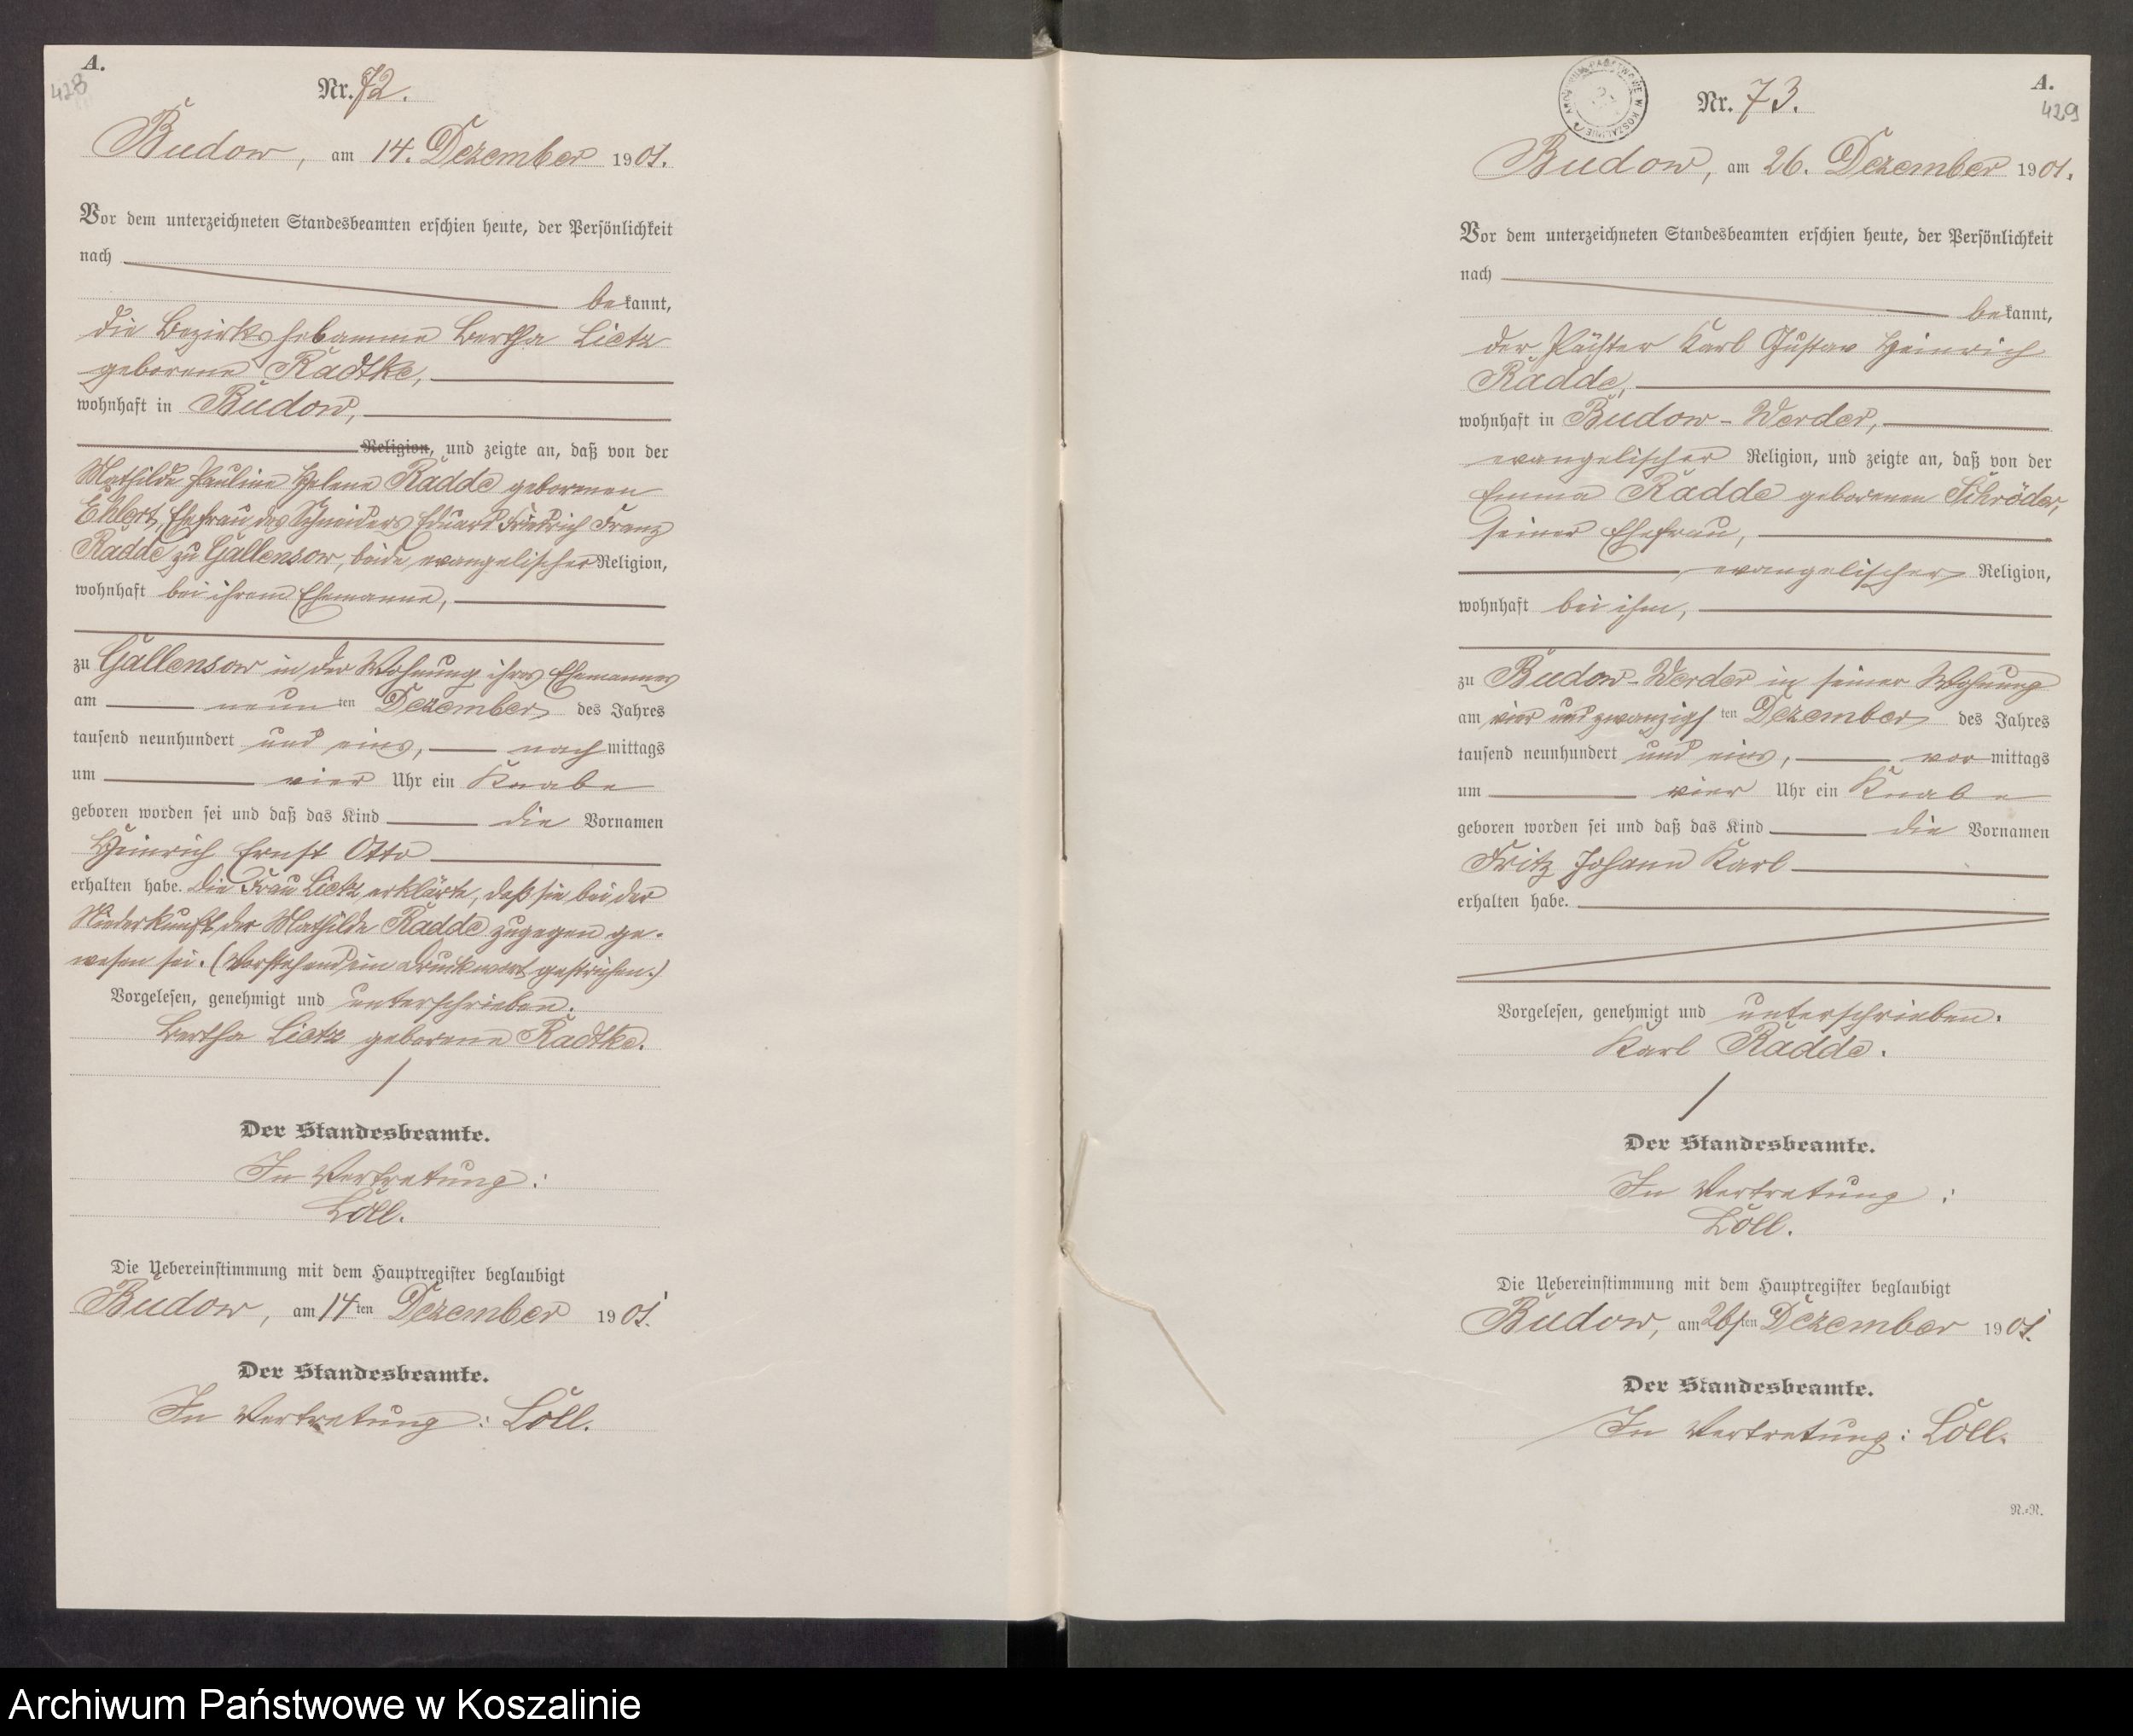 A.
428
Nr. 72.
Budow, am 14. Dezember 1901.
Vor dem unterzeichneten Standesbeamten erschien heute, der Persönlichkeit
nach
bekannt,
die Bezirkshebamme Bertha Lietz
geborene Radtke,
wohnhaft in Budow,
Religion, und zeigte an, daß von der
Mathilde Pauline Helene Radde geborenen
Ehlert, Ehefrau des Schneiders Eduard Friedrich Franz
Radde zu Gallensow, beide evangelischer Religion,
wohnhaft bei ihrem Ehemanne,
zu Gallensow in der Wohnung ihres Ehemannes
am neunten Dezember des Jahres
tausend neunhundert und eins, nachmittags
um vier Uhr ein Knabe
geboren worden sei und daß das Kind die Vornamen
Heinrich Ernst Otto
erhalten habe. Die Frau Lietz erklärte, daß sie bei der
Niederkunft der Mathilde Radde zugegen ge-
wesen sei. (Vorstehend ein Druckwort gestrichen.)
Vorgelesen, genehmigt und unterschrieben.
Bertha Lietz geborene Radtke.
Der Standesbeamte.
In Vertretung:
Löll.
Die Uebereinstimmung mit dem Hauptregister beglaubigt
Budow, am 14ten Dezember 1901.
Der Standesbeamte.
In Vertretung: Löll.
ARCHIWUM PAŃSTWOWE W KOSZALINIE
A.
429
Nr. 73.
Budow, am 26. Dezember 1901.
Vor dem unterzeichneten Standesbeamten erschien heute, der Persönlichkeit
nach
bekannt,
der Pächter Karl Gustav Heinrich
Radde,
wohnhaft in Budow-Werder,
evangelischer Religion, und zeigte an, daß von der
Emma Radde geborenen Schröder,
seiner Ehefrau,
evangelischer Religion,
wohnhaft bei ihm,
zu Budow-Werder in seiner Wohnung
am vier und zwanzigsten Dezember des Jahres
tausend neunhundert und eins, vormittags
um vier Uhr ein Knabe
geboren worden sei und daß das Kind die Vornamen
Fritz Johann Karl
erhalten habe.
Vorgelesen, genehmigt und unterschrieben.
Karl Radde.
Der Standesbeamte.
In Vertretung:
Löll.
Die Uebereinstimmung mit dem Hauptregister beglaubigt
Budow, am 26sten Dezember 1901.
Der Standesbeamte.
In Vertretung: Löll.
N.-N.
Archiwum Państwowe w Koszalinie